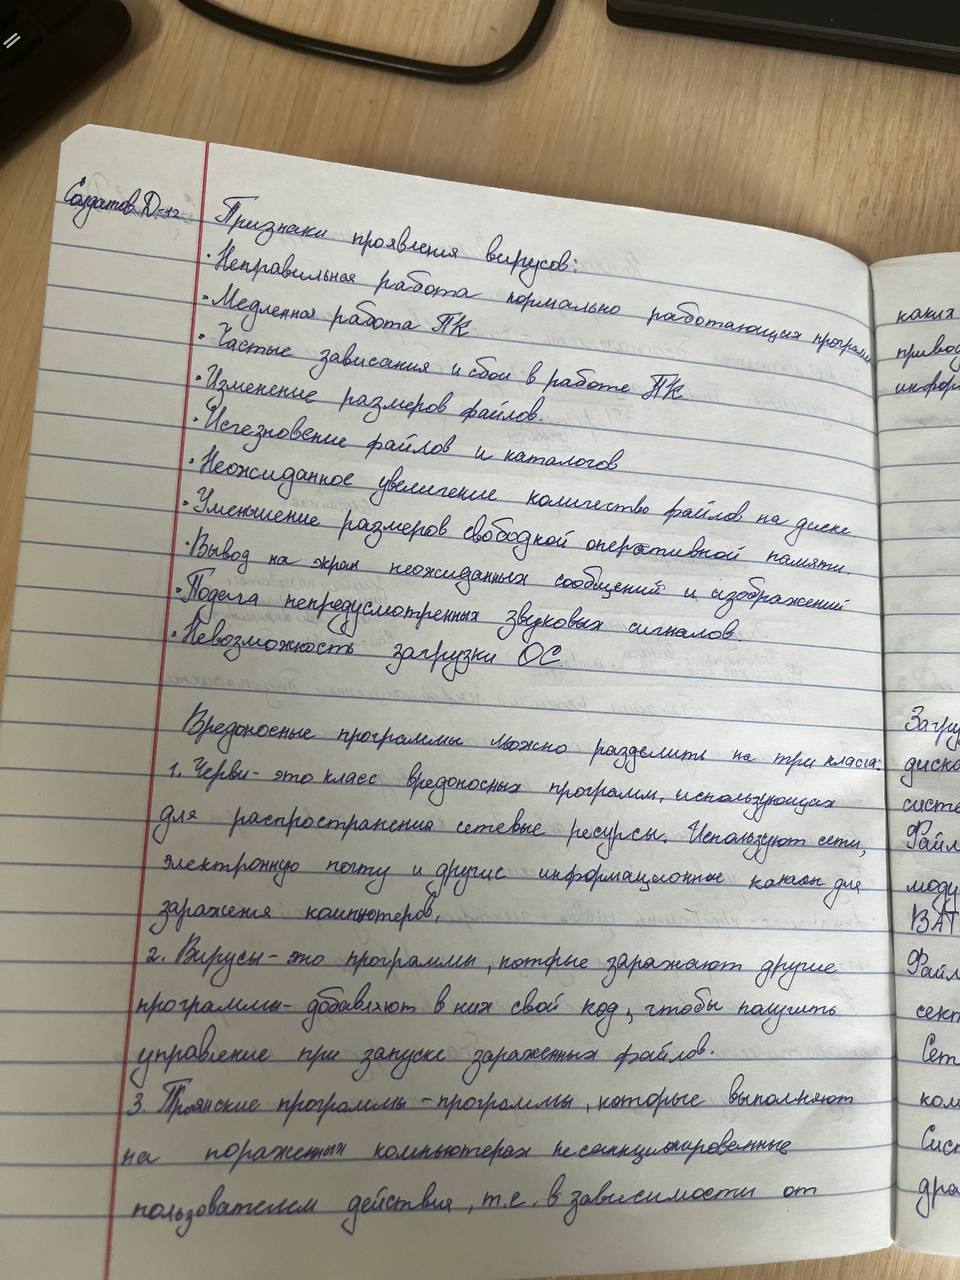 Солдатов Д-12
Признаки проявления вирусов:
· Неправильная работа нормально работающих программ
· Медленная работа ПК
· Частые зависания и сбои в работе ПК
· Изменение размеров файлов.
· Исчезновение файлов и каталогов
· Неожиданное увеличение количества файлов на диске
· Уменьшение размеров свободной оперативной памяти.
· Вывод на экран неожиданных сообщений и изображений
· Подача непредусмотренных звуковых сигналов.
· Невозможность загрузки ОС
Вредоносные программы можно разделить на три класса:
1. Черви - это класс вредоносных программ, использующих
для распространения сетевые ресурсы. Используют сети,
электронную почту и другие информационные каналы для
заражения компьютеров.
2. Вирусы - это программы, которые заражают другие
программы - добавляют в них свой код, чтобы получить
управление при запуске зараженных файлов.
3. Троянские программы - программы, которые выполняют
на пораженных компьютерах несанкционированные
пользователем действия, т.е. в зависимости от
каких
привод
информ
Загру
диско
систе
Файл
моду
BAT
Файл
сект
Сет
ком
Сист
дра